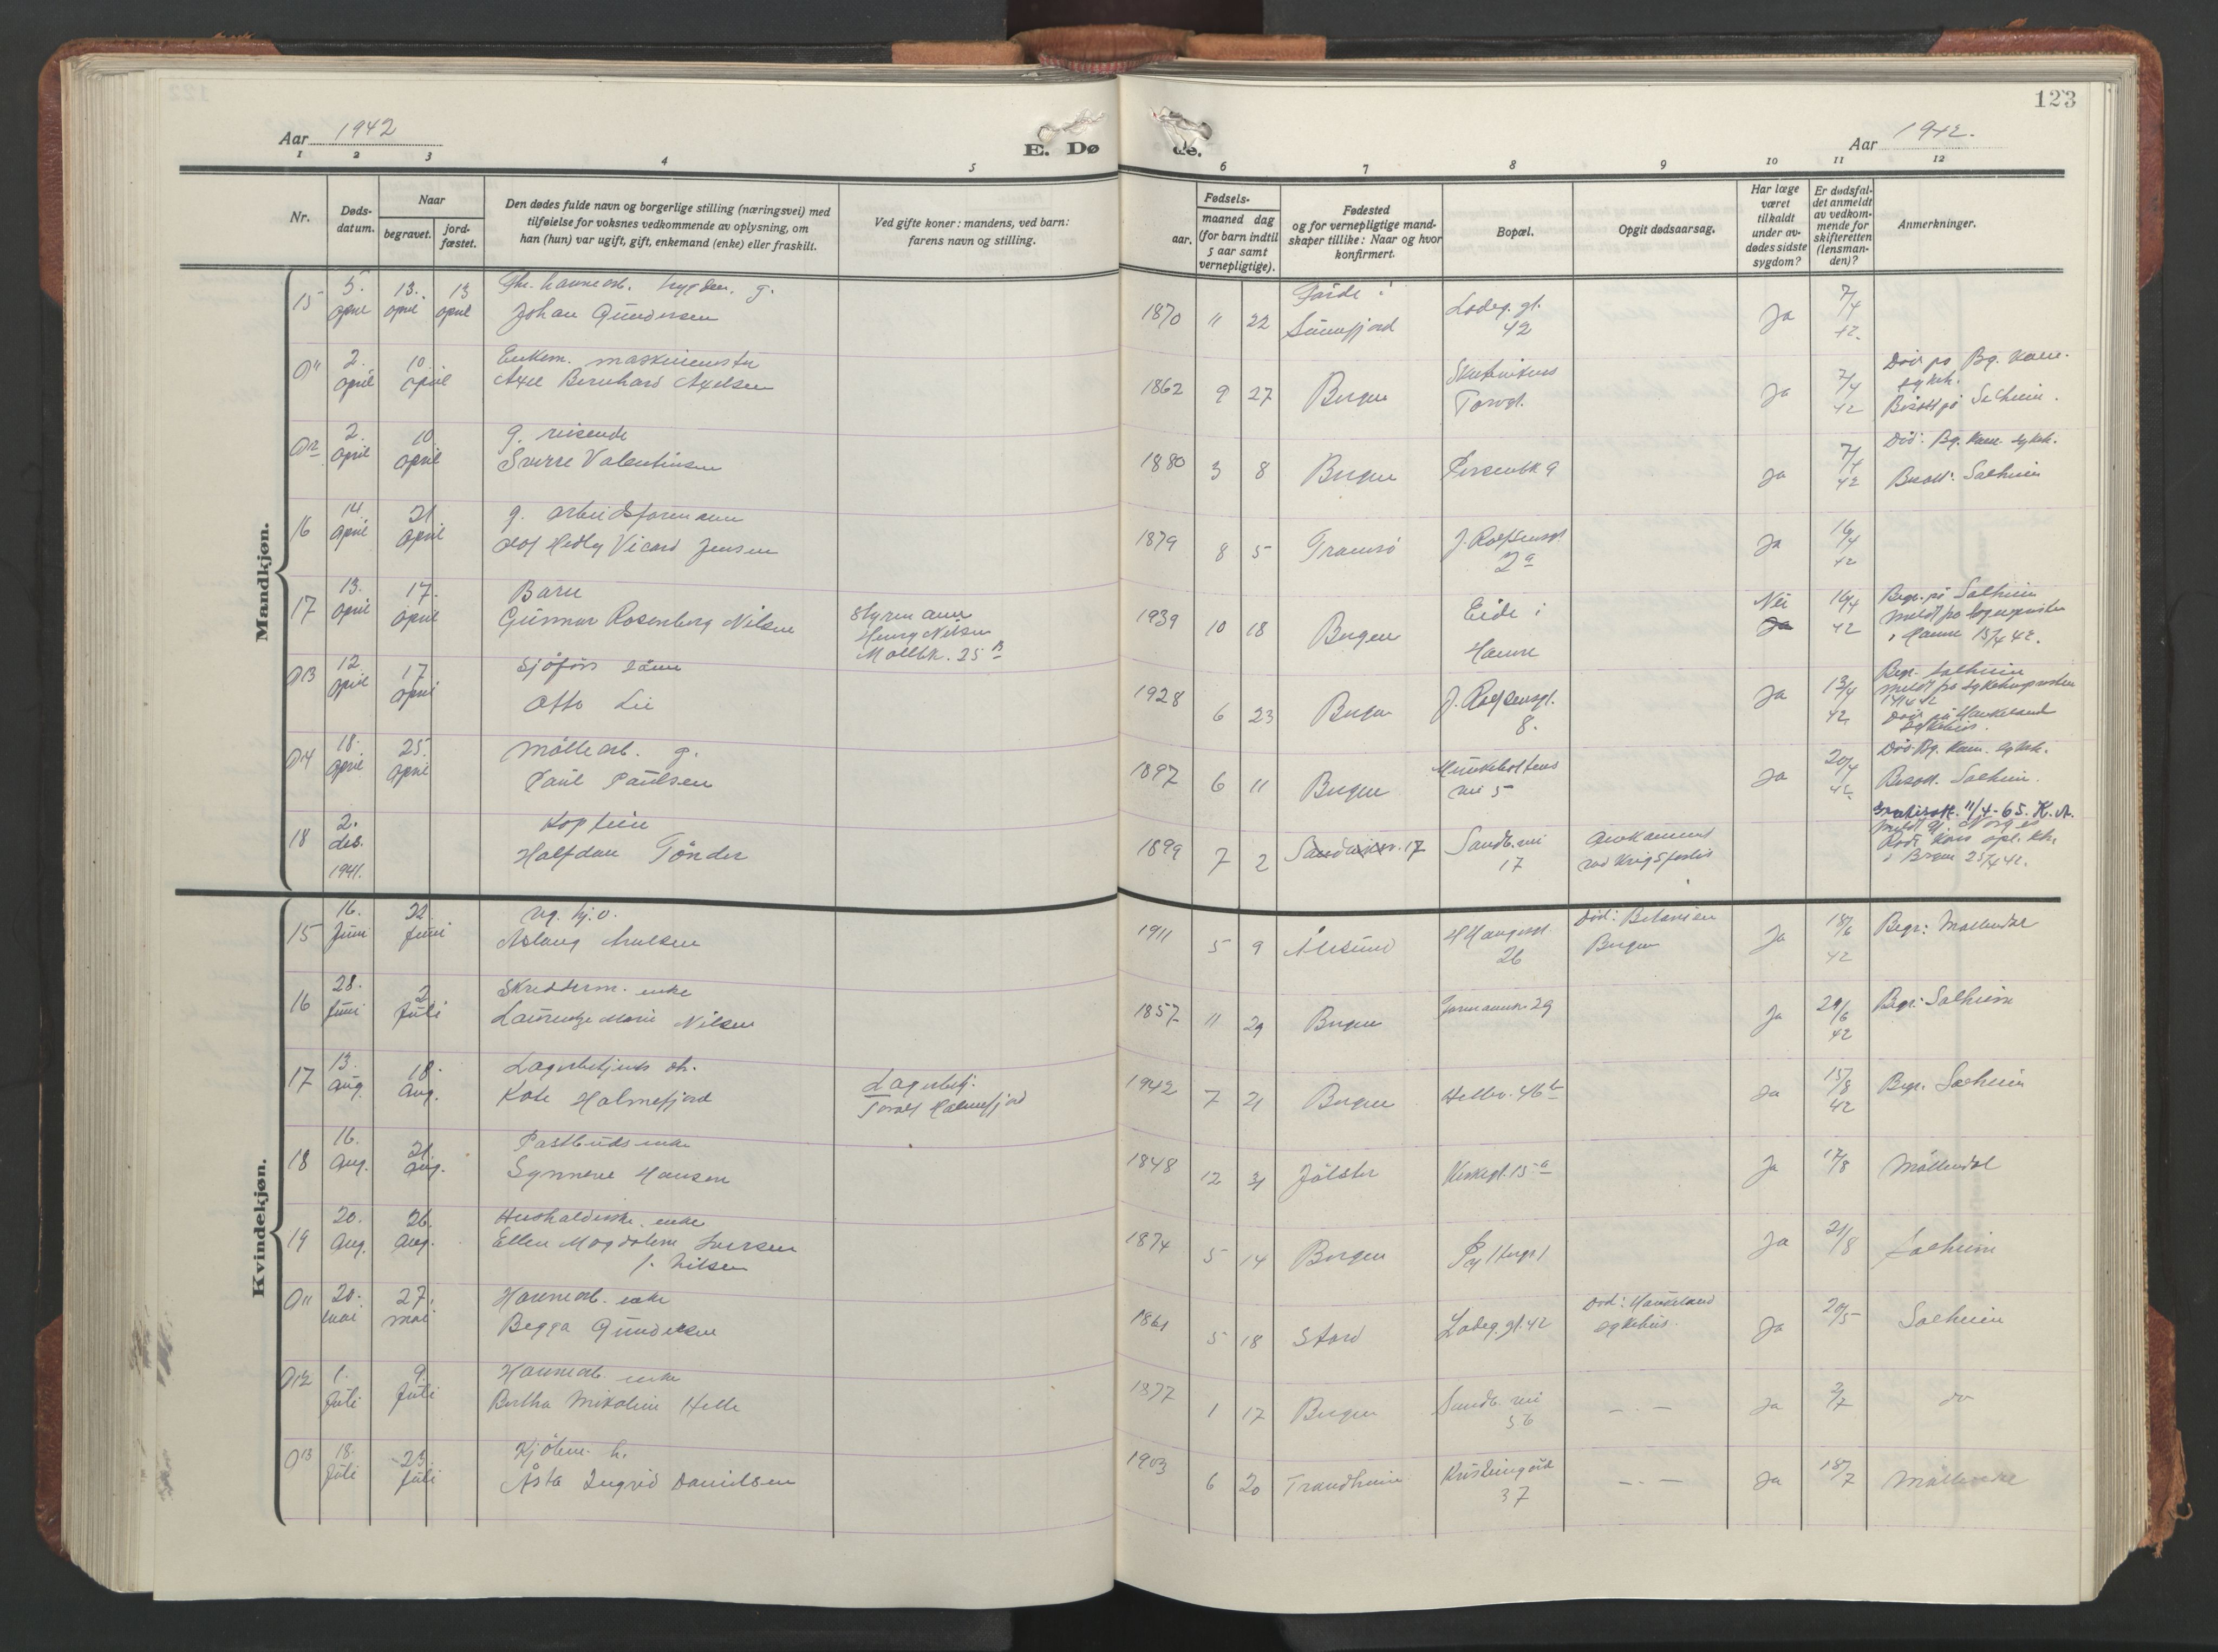 123
Aar 1942
E. Døde.
Aar 1942.
1 2 3 4 5 6 7 8 9 10 11 12
Nr.
Døds-
datum.
Naar
begravet.
jord-
fæstet.
Den dødes fulde navn og borgerlige stilling (næringsvei) med
tilføielse for voksnes vedkommende av oplysning, om
han (hun) var ugift, gift, enkemand (enke) eller fraskilt.
Ved gifte koner: mandens, ved barn:
farens navn og stilling.
Fødsels-
aar.
maaned dag
(for barn indtil
5 aar samt
vernepligtige).
Fødested
og for vernepligtige mand-
skaper tillike: Naar og hvor
konfirmert.
Bopæl.
Opgit dødsaarsag.
Har læge
været
tilkaldt
under av-
dødes sidste
sygdom?
Er dødsfal-
det anmeldt
av vedkom-
mende for
skifteretten
(lensman-
den)?
Anmerkninger.
Mandkjøn.
15 5. april 13. april 13 april
Johan Gundersen
1870 11 22 Förde i Sunnfjord Ladeg. gt. 42 Ja 7/4 42.
011 2. april 10. april
Enkem. maskinmstr
Axel Bernhard Axelsen
1862 9 27 Bergen Skutevikens Torvgt. Ja 7/4 42
Död på Bg. Kom. sykeh.
Bisatt på Solheim.
012 2. april 10. april
g. reisende
Sverre Valentinsen
1880 3 8 Bergen Ja 7/4 42
Död: Bg. Kom. sykeh.
Bisatt: Solheim
16 14. april 21. april
g. arbeidsformann
Olof Hedly Vicard Jensen
1879 8 5 Tromsö J. Rolfsensgt 2a Ja 16/4 42
17 13. april 17. april
Barn
Gunnar Rosenberg Nilsen
Styrmann
Henry Nilsen
Möllbk. 25 B
1939 10 18 Bergen Eide i Hamre Nei Ja 16/4 42
Begr. på Solheim
meldt fra sognepresten
i Hamre 15/4 42.
013 12. april 17 april
Sjåförs sönn
Otto Lie
1928 6 23 Bergen J. Rolfsensgt. 8. Ja 13/4 42
Begr. Solheim
meldt fra sykehuspresten
14/4 42
Död på Haukeland
Sykehus.
014 18. april 25. april
Möllearb. g.
Paul Paulsen
1897 6 11 Bergen Munkebottens vei 5 Ja 20/4 42
Död Bg. Kom. sykeh.
Bisatt. Solheim.
18 2. des. 1941.
Kaptein
Halfdan Tönder
1899 7 2 Sandviksv. 17 Sandv. vei 17 Omkommet ved krigsforlis
11/4-65. K. A.
meldt gj. Norges
Röde Kors
i Bergen 25/4 42.
Kvindekjøn.
15 16. juni 22. juni
ug. hj.
Aslaug
1911 5 9 Ålesund 26 Död: Betanien Bergen Ja 18/6 42 Begr: Möllendal
16 28. juni 2. juli
Skredderm. enke
Laurentze Marie Nilsen
1857 11 29 Bergen Formannsv. 29 Ja 29/6 42 Begr: Solheim
17 13. aug. 18. aug.
Lagerbetjents dt.
Kate Holmefjord
Lagerbetj.
Toralf Holmefjord
1942 7 21 Bergen Hellev. 46 b Ja 15/8 42 Begr. Solheim
18 16. aug. 21. aug.
Postbuds enke
Synneve Hansen
1848 12 31 Jölster Kirkegt. 15 a Ja 17/8 Möllendal
19 20. aug. 26. aug.
Husholderske. enke
Ellen Magdalene Iversen
f. Nilsen
1874 5 14 Bergen Ja 21/8 Solheim
011 20. mai 27. mai
Havnearb. enke
Begga Gundersen
1861 5 18 Stord Ladeg. gt. 42 Död: Haukeland sykehus. Ja 20/5 Solheim
012 1. juli 9. juli
Havnearb. enke
Bertha Mikoline Helle
1877 1 17 Bergen Sandv. vei 56 — · — Ja 2/7 do
013 18. juli 23. juli
Kjölem. h.
Åsta Ingrid Danielsen
1903 6 20 Trondheim 37 — · — Ja 18/7 Möllendal